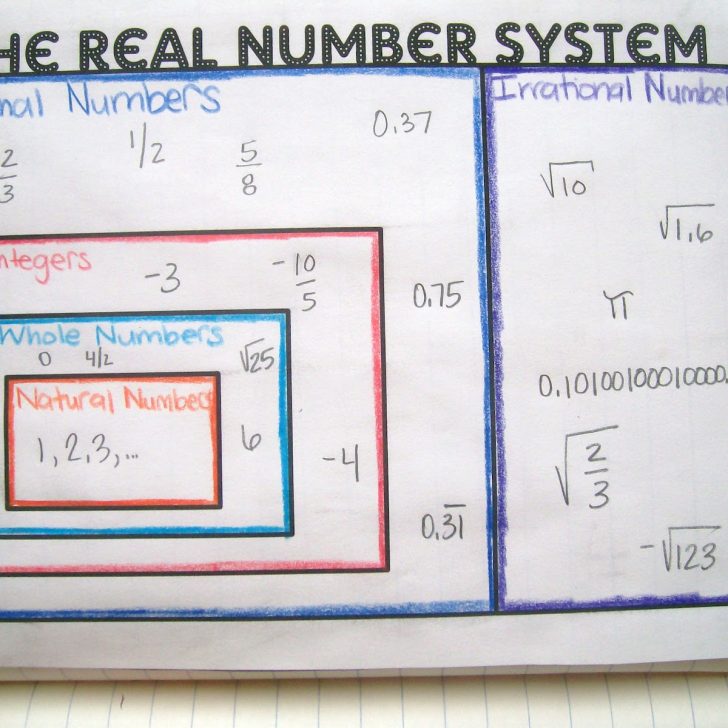 HE REAL NUMBER SYSTEM
nal Numbers
2/3
1/2
5/8
0.37
ntegers
-3
-10/5
0.75
Whole Numbers
0 4/2
√25
Natural Numbers
1, 2, 3, ...
6
-4
0.3̅1̅
Irrational Number
√10
√1.6
π
0.10100100010000.
√2/3
-√123